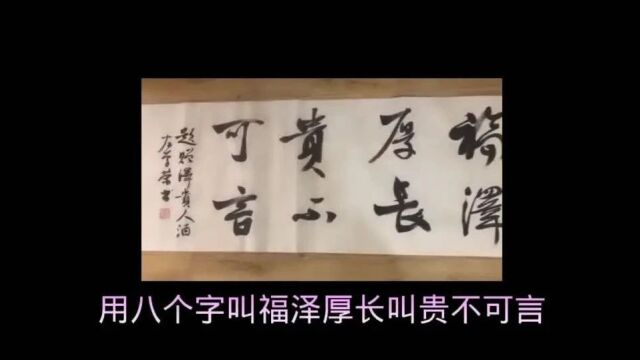 福澤
厚長
貴不
可言
澤貴人酒
用八个字叫福泽厚长叫贵不可言